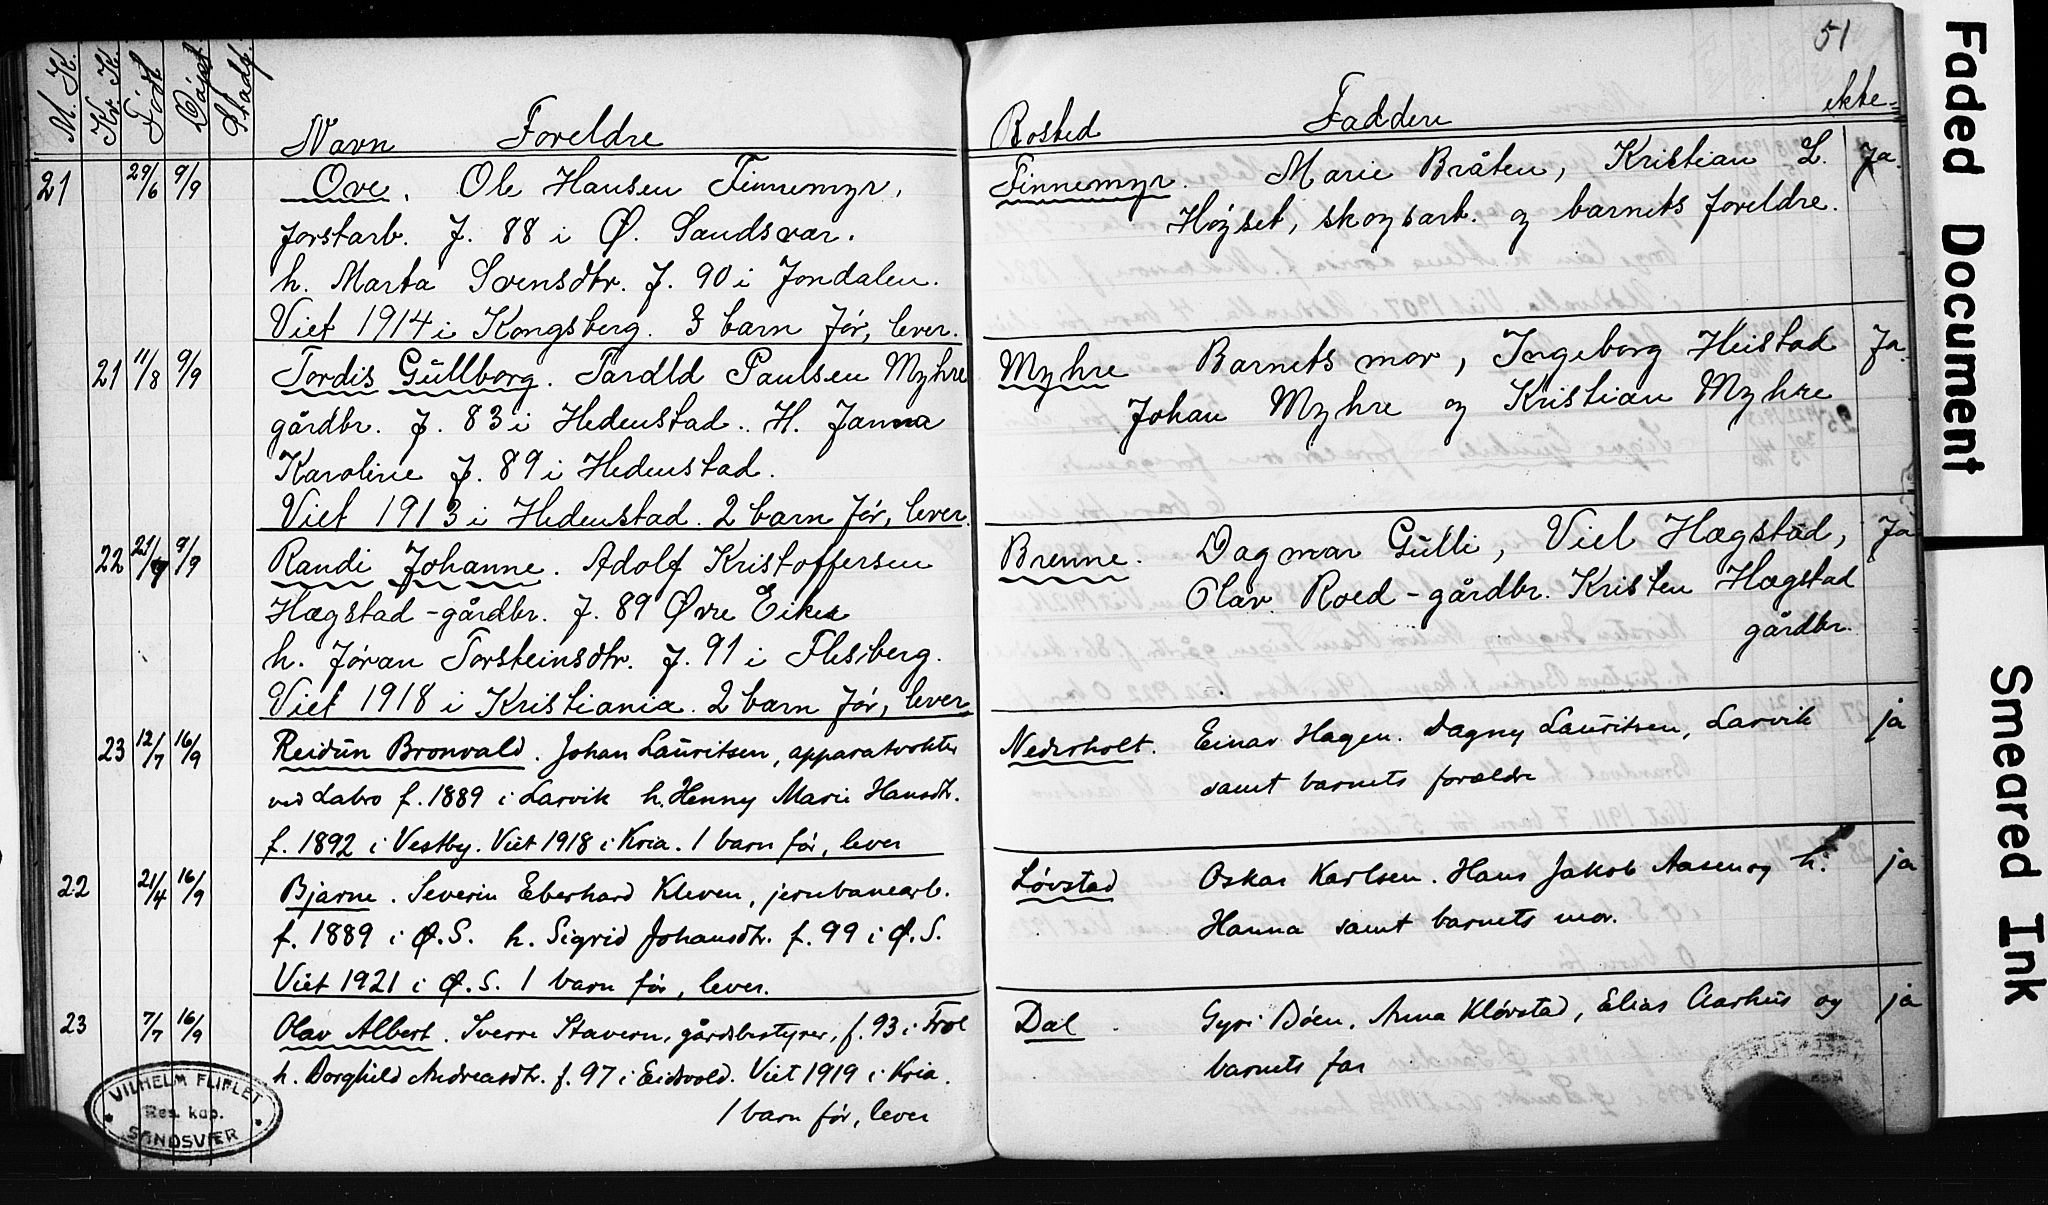 51
M. K. Kv. K. Født Døpt Stadf. Navn Foreldre Bosted Faddere ekte
21 29/6 9/9 Ove. Ole Hansen Finnemyr,
forstarb. f. 88 i Ø. Sandsvær.
h. Marta Svensdtr. f. 90 i Jondalen.
Viet 1914 i Kongsberg. 3 barn før, lever.
Finnemyr. Marie Bråten, Kristian L. Ja.
Højset, skogsarb. og barnets foreldre.
21 11/8 9/9 Tordis Gullborg. Tardld Paulsen Myhre
gårdbr. f. 83 i Hedenstad. H. Janna
Karoline f. 89 i Hedenstad.
Viet 1913 i Hedenstad. 2 barn før, lever.
Myhre Barnets mor, Ingeborg Heistad Ja.
Johan Myhre og Kristian Myhre
22 21/7 9/9 Randi Johanne. Adolf Kristoffersen
Hægstad - gårdbr. f. 89 Øvre Eiker
h. Jøran Torsteinsdtr. f. 91 i Flesberg.
Viet 1918 i Kristiania. 2 barn før, lever.
Brenne. Dagmar Gulli, Viel Hægstad, Ja
Olav Roed - gårdbr. Kristen Hægstad
gårdbr.
23 12/7 16/9 Reidun Bronvald. Johan Lauritsen, apparatvokter
ved Labro f. 1889 i Larvik h. Henny Marie Hansdtr.
f. 1892 i Vestby. Viet 1918 i Kria. 1 barn før, lever
Nederholt. Einar Hagen. Dagny Lauritsen, Larvik ja
samt barnets forældre
22 21/4 16/9 Bjarne. Severin Eberhard Kleven, jernbanearb.
f. 1889 i Ø.S. h. Sigrid Johansdtr. f. 99 i Ø.S.
Viet 1921 i Ø.S. 1 barn før, lever.
Løvstad Oskar Karlsen. Hans Jakob Aasen og h. ja
Hanna samt barnets mor.
23 7/7 16/9 Olav Albert. Sverre Stavern, gårdsbestyrer, f. 93 i Frol
h. Borghild Andreasdtr. f. 97 i Eidsvold. Viet 1919 i Kria.
1 barn før, lever
Dal Gyri Bøen, Anna Kløvstad, Elias Aarhus og ja
barnets far
VILHELM FLIFLET
Res. kap.
SANDSVÆR
Faded Document
Smeared Ink